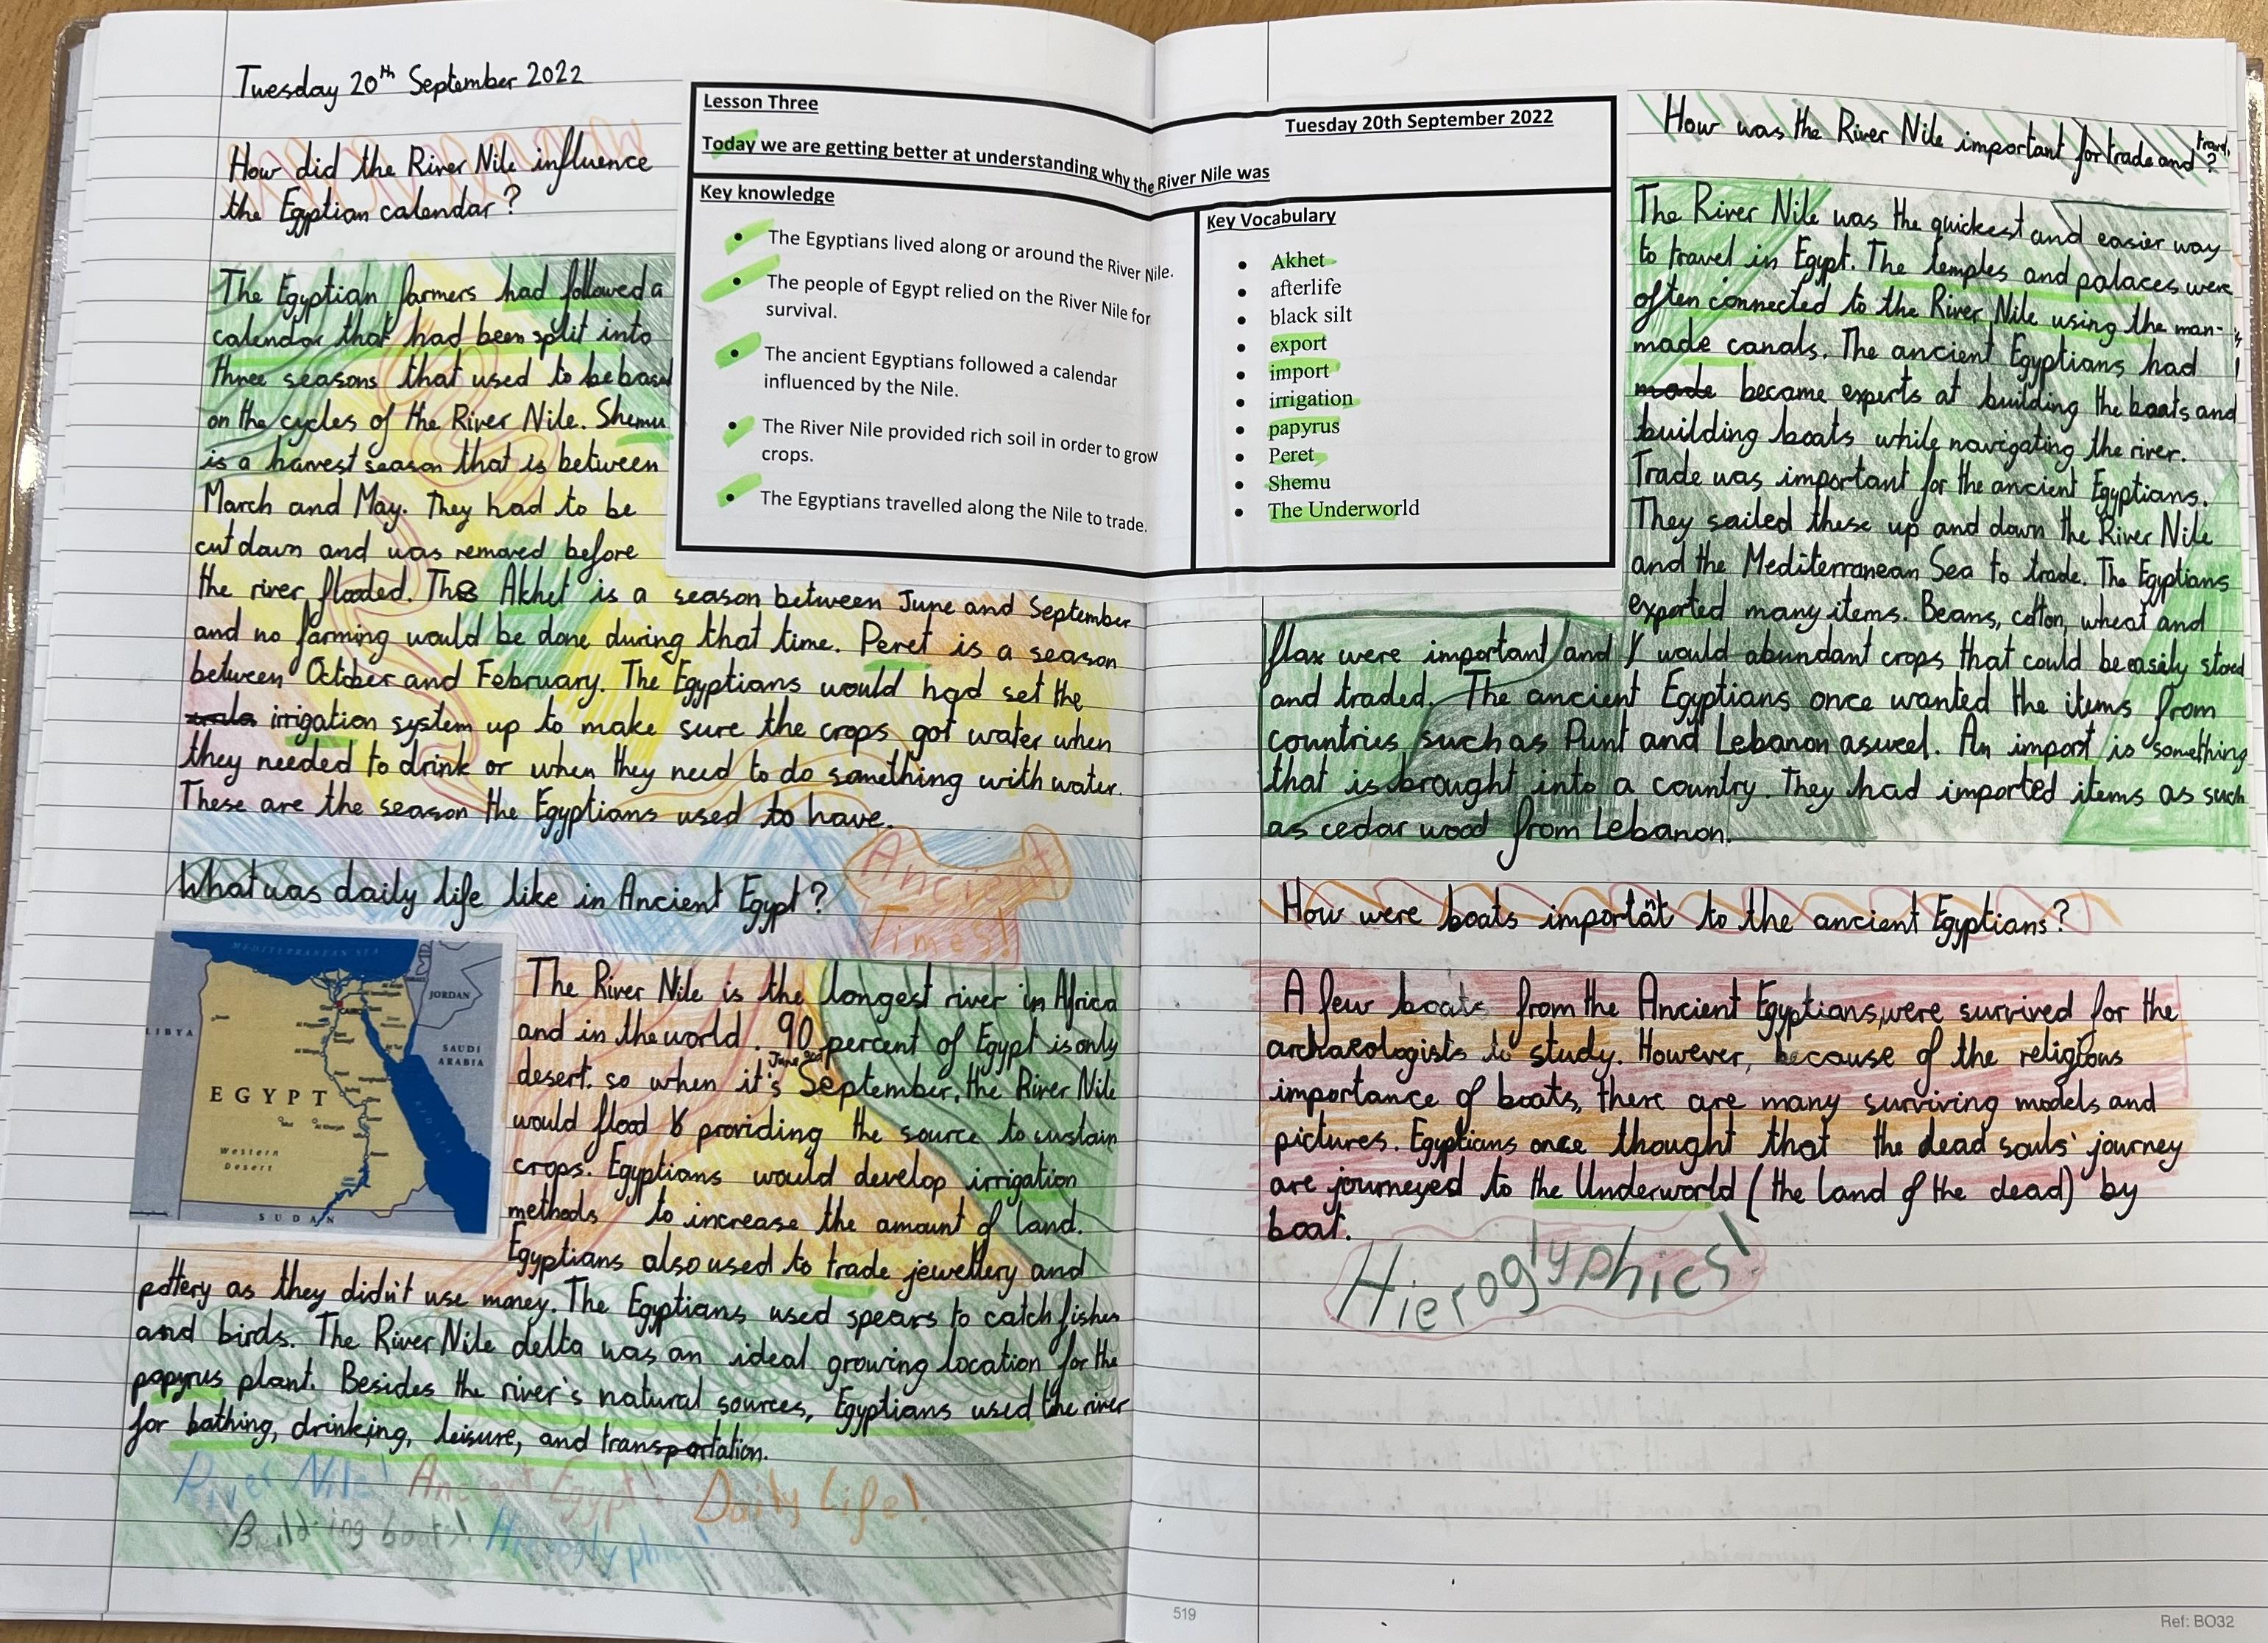 Tuesday 20th September 2022
How did the River Nile influence
the Egyptian calendar?
The Egyptian farmers had followed a
calendar that had been split into
three seasons that used to be based
on the cycles of the River Nile. Shemu
is a harvest season that is between
March and May. They had to be
cut down and was removed before
the river flooded. The Akhet is a season between June and September
and no farming would be done during that time. Peret is a season
between October and February. The Egyptians would had set the
irrigation system up to make sure the crops got water when
they needed to drink or when they need to do something with water.
These are the season the Egyptians used to have.
Ancient
Times!
What was daily life like in Ancient Egypt?
MEDITERRANEAN SEA
JORDAN
LIBYA
SAUDI
ARABIA
CAIRO
EGYPT
Western
Desert
RED SEA
SUDAN
The River Nile is the longest river in Africa
and in the world. 90 percent of Egypt is only
June and
desert. so when it's September, the River Nile
would flood & providing the source to sustain
crops. Egyptians would develop irrigation
methods to increase the amount of land.
Egyptians also used to trade jewellery and
pottery as they didn't use money. The Egyptians used spears to catch fishes
and birds. The River Nile delta was an ideal growing location for the
papyrus plant. Besides the river's natural sources, Egyptians used the river
for bathing, drinking, leisure, and transportation.
River Nile! Ancient Egypt! Daily Life!
Building boats! Hieroglyphics!
Lesson Three
Tuesday 20th September 2022
Today we are getting better at understanding why the River Nile was
Key knowledge
• The Egyptians lived along or around the River Nile.
• The people of Egypt relied on the River Nile for
survival.
• The ancient Egyptians followed a calendar
influenced by the Nile.
• The River Nile provided rich soil in order to grow
crops.
• The Egyptians travelled along the Nile to trade.
Key Vocabulary
• Akhet
• afterlife
• black silt
• export
• import
• irrigation
• papyrus
• Peret
• Shemu
• The Underworld
How was the River Nile important for trade and travel?
The River Nile was the quickest and easier way
to travel in Egypt. The temples and palaces were
often connected to the River Nile using the man-
made canals. The ancient Egyptians had
made became experts at building the boats and
building boats while navigating the river.
Trade was important for the ancient Egyptians.
They sailed these up and down the River Nile
and the Mediterranean Sea to trade. The Egyptians
exported many items. Beans, cotton, wheat and
flax were important and would abundant crops that could be easily stored
and traded. The ancient Egyptians once wanted the items from
countries such as Punt and Lebanon aswell. An import is something
that is brought into a country. They had imported items as such
as cedar wood from Lebanon.
How were boats important to the ancient Egyptians?
A few boats from the Ancient Egyptians, were survived for the
archaeologists to study. However, because of the religious
importance of boats, there are many surviving models and
pictures. Egyptians once thought that the dead souls' journey
are journeyed to the Underworld (the land of the dead) by
boat.
Hieroglyphics!
519
Ref: BO32